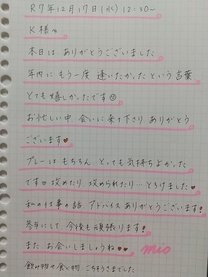 R7年12月17日(水) 12:10~
K様へ
本日は ありがとうございました
年内に もう一度 逢いたかった という言葉
とても嬉しかったです☺
お忙しい中 会いに来て下さり ありがとう
ございます♥
プレーは もちろん とっても気持ちよかった
です♡ 攻めたり 攻められたり…とろけました♥
私の仕事の話 アドバイス ありがとうございます!
参考にして 今後も頑張ります!
また お会いしましょうね♥♥ mio
飲み物や食い物 ごちそうさまでした